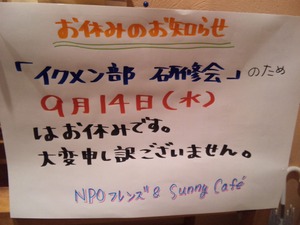 お休みのお知らせ
「イクメン部 研修会」のため
9月14日(水)
はお休みです。
大変申し訳ございません。
NPOフレンズ & Sunny Café